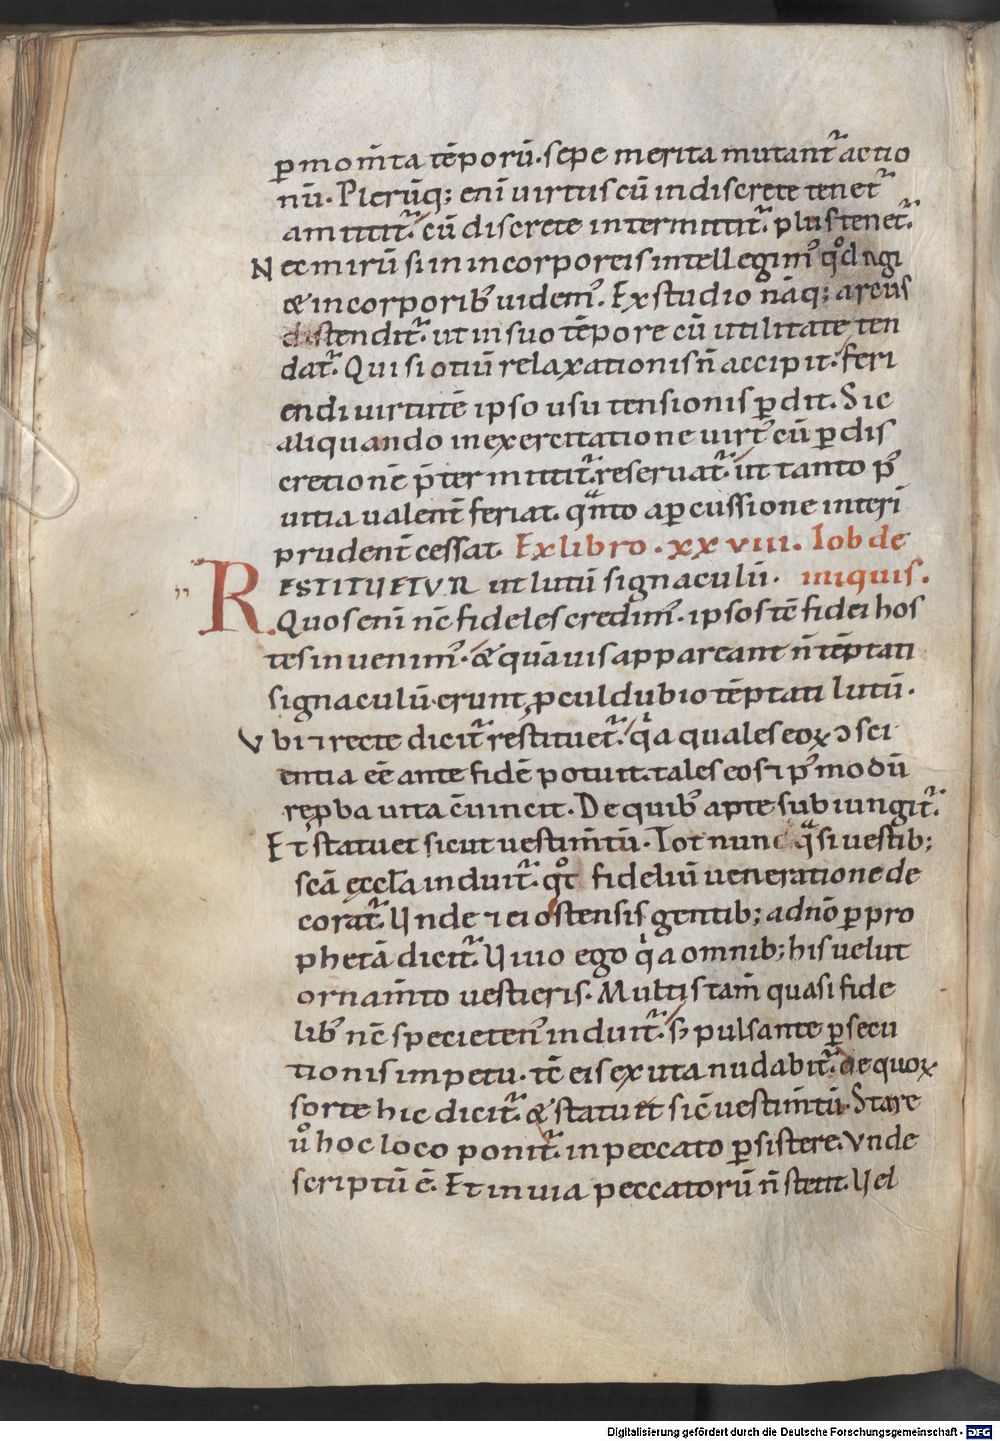 p̱ mom̄ta tēporū. sepe merita mutant᷑ actio
nū. Pleruq̄; eni᷑ uirtus cū indiscrete tenet᷑
amittit᷑. cū discrete intermittit᷑. plus tenet᷑.
Nec mirū si in incorporeis intellegim᷒ qd̊ agi
& in corporib᷒ uidem᷒. Ex studio nāq; arcus
distendit᷑. ut in suo tēpore cū utilitate ten
dat᷑. Qui si otiū relaxationis n̄ accipit. feri
endi uirtutē ipso usu tensionis p̱dit. Sic
aliquando in exercitatione uirt᷒ cū p̱ dis
cretionē p̄termittit᷑. reseruat᷑. ut tanto p᷒
uitia ualent̄ feriat. qͣnto a p̱cussione interi᷑
prudent̄ cessat. Ex libro . xxviii. Iob de
RESTITUETUR ut lutū signaculū. iniquis.
Quos eni᷑ nc̄ fideles credim᷒. ipsos tc̄ fidei hos
tes inuenim᷒. & quāuis appareant n̄ tēptati
signaculū. erunt ꝓculdubio tēptati lutū.
Vbi ⁊ recte dicit᷑ restituet᷑. qͥa quales eoꝝ ɔsci
entia eē ante fidē potuit. tales eos ⁊ p᷒modū
reꝓba uita c̄uincit. De quib᷒ apte subiungit᷑.
Et statuet sicut uestim̄tū. Tot nunc qͣsi uestib;
scā eccƚa induit᷑. qͦt fideliū ueneratione de
corat᷑. Unde ⁊ ei ostensis gentib; a dn̄o p̱ pro
phetā dicit᷑. Uiuo ego qͥa omnib; his uelut
ornam̄to uestieris. Multis tam̄ quasi fide
lib᷒ nc̄ specieten᷒ induit᷑. s; pulsante p̱secu
tionis impetu. tc̄ eis exuta nudabit᷑. de quoꝝ
sorte hic dicit᷑. & statuet sic̄ uestim̄tū. Stare
ů hoc loco ponit᷑. in peccato p̱sistere. Vnde
scriptū ē. Et in uia peccatorū n̄ stetit. Uel
Digitalisierung gefördert durch die Deutsche Forschungsgemeinschaft - DFG